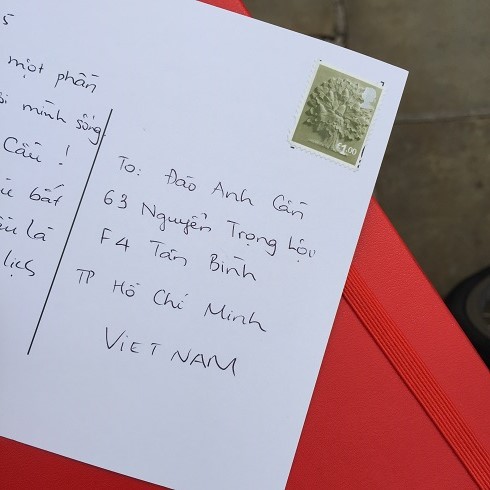 5
một phần
mình sống
Cầu !
bắt
là
lịch
£1.00
To: Đào Anh Cần
63 Nguyễn Trọng Lội
F4 Tân Bình
TP Hồ Chí Minh
VIET NAM